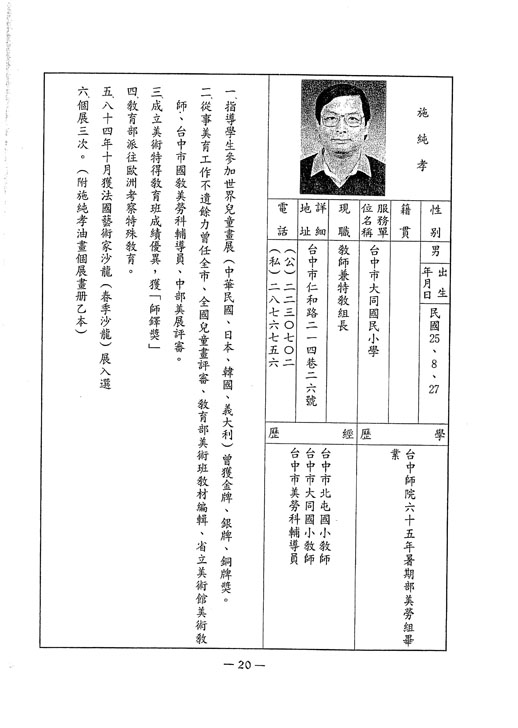 施純孝
性別
男
出生年月日
民國25、8、27
籍貫
服務單位名稱
台中市大同國民小學
現職
教師兼特教組長
詳細地址
台中市仁和路二一四巷二六號
電話
（公）二二三〇七〇二
（私）二八七六七五六
學歷
台中師院六十五年暑期部美勞組畢
業
經歷
台中市北屯國小教師
台中市大同國小教師
台中市美勞科輔導員
一、指導學生參加世界兒童畫展（中華民國、日本、韓國、義大利）曾獲金牌、銀牌、銅牌獎。
二、從事美育工作不遺餘力曾任全市、全國兒童畫評審、教育部美術班教材編輯、省立美術館美術教
師、台中市國教美勞科輔導員、中部美展評審。
三、成立美術特得教育班成績優異，獲「師鐸獎」
四、教育部派往歐洲考察特殊教育。
五、八十四年十月獲法國藝術家沙龍（春季沙龍）展入選
六、個展三次。（附施純孝油畫個展畫冊乙本）
— 20 —